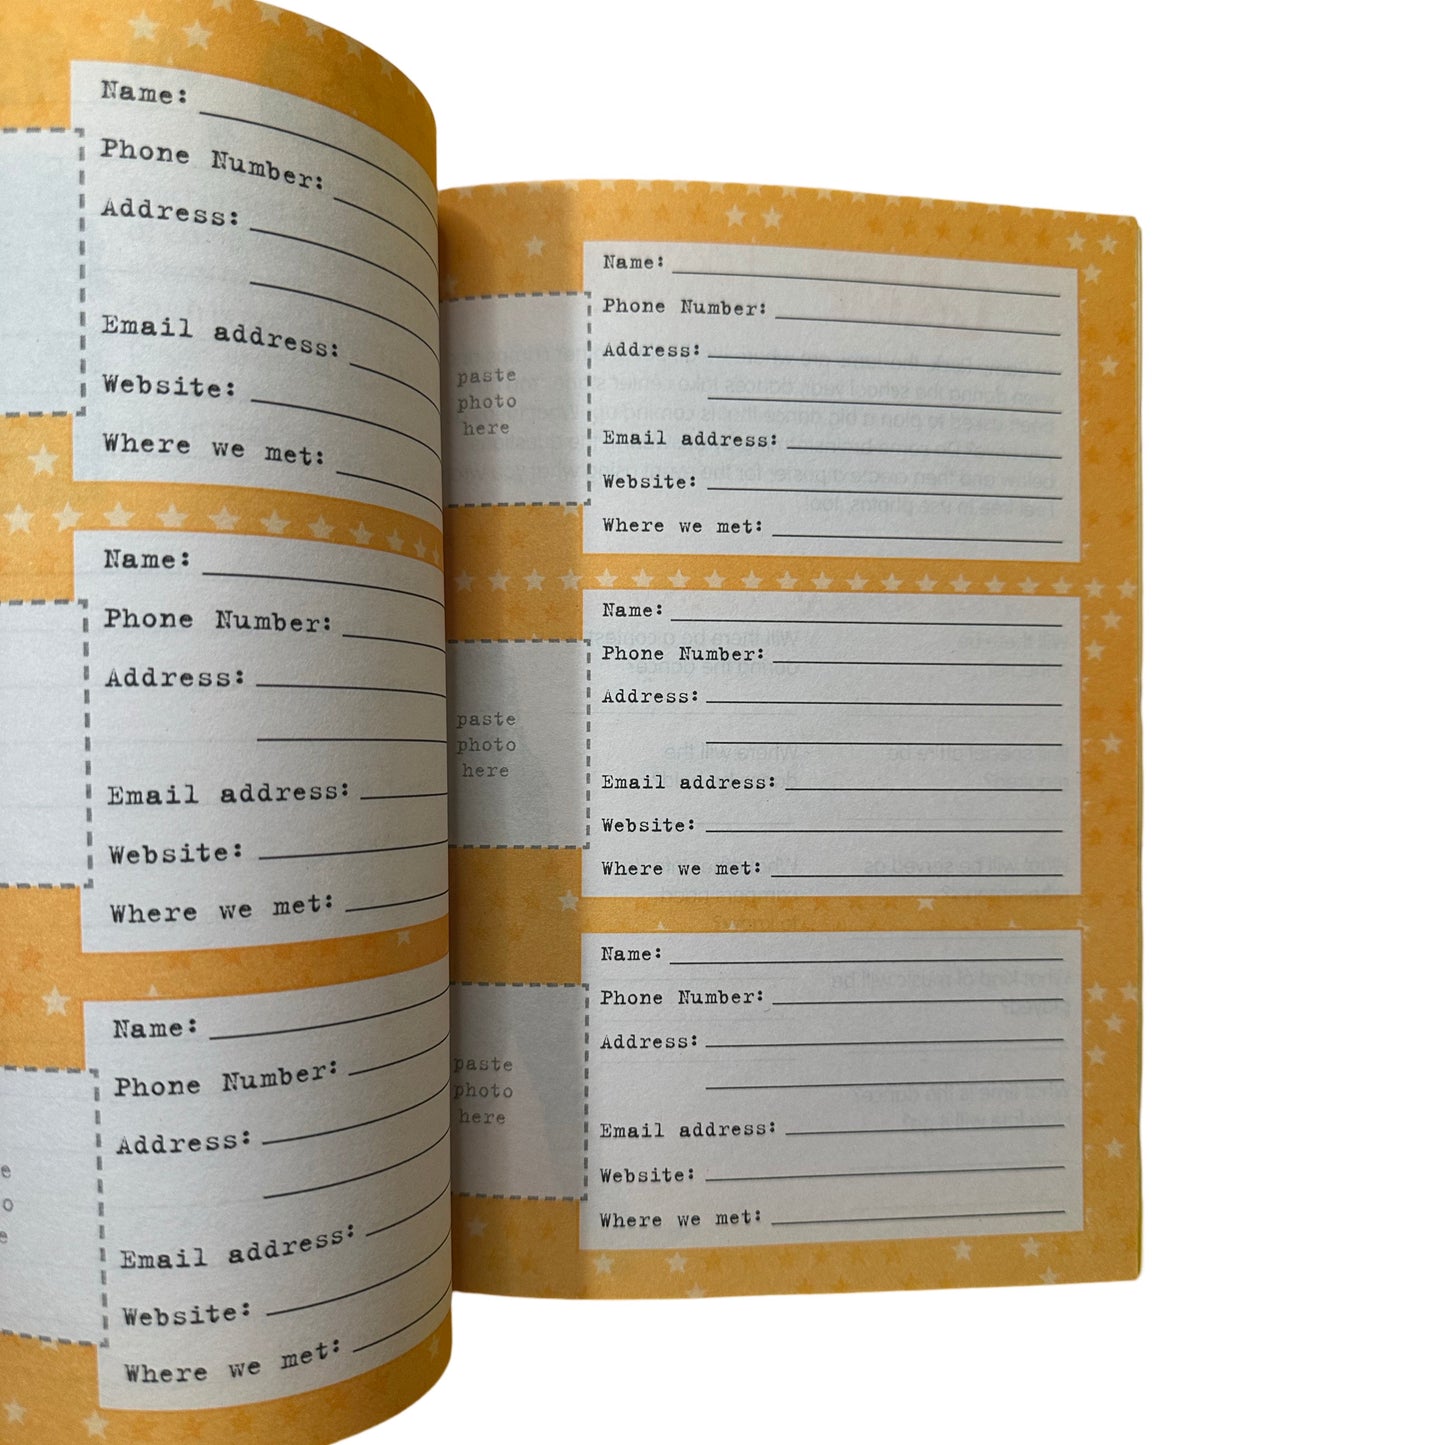 Name:
Phone Number:
Address:
Email address:
Website:
Where we met:
Name:
Phone Number:
Address:
Email address:
Website:
Where we met:
Name:
Phone Number:
Address:
Email address:
Website:
Where we met:
paste
photo
here
Name:
Phone Number:
Address:
Email address:
Website:
Where we met:
paste
photo
here
Name:
Phone Number:
Address:
Email address:
Website:
Where we met:
paste
photo
here
Name:
Phone Number:
Address:
Email address:
Website:
Where we met: